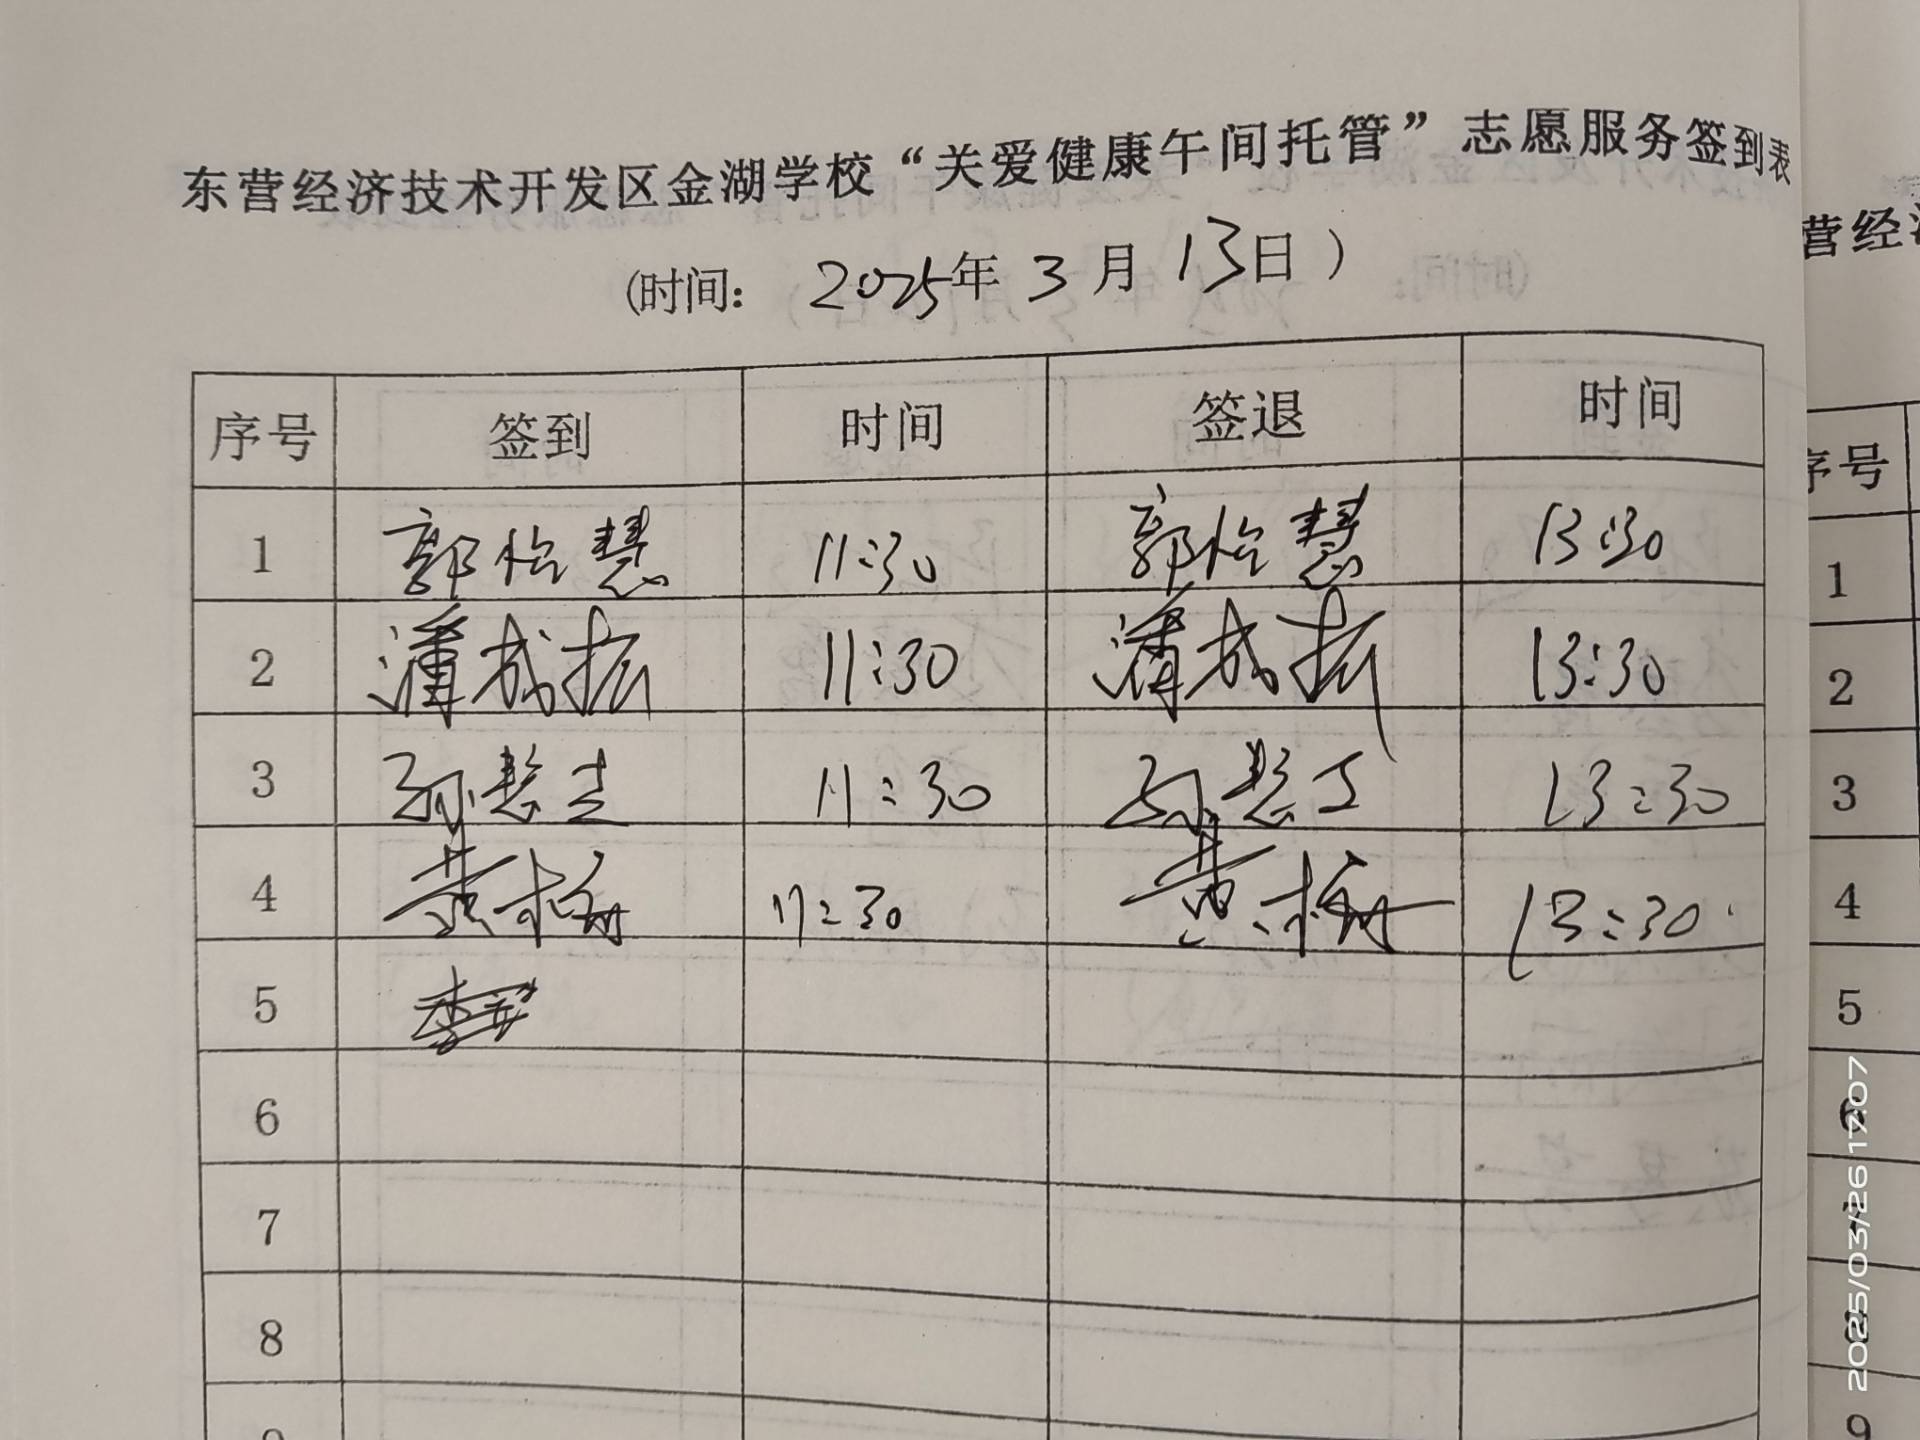 东营经济技术开发区金湖学校“关爱健康午间托管”志愿服务签到表
(时间: 2025年 3 月 13日 )
序号 签到 时间 签退 时间
1 郭怡慧 11:30 郭怡慧 13:30
2 潘成振 11:30 潘成振 13:30
3 孙慧 11:30 孙慧 13:30
4 黄梅 11:30 黄梅 13:30
5
6
7
8
9
营经济
序号
1
2
3
4
5
6
7
8
9
2025/03/26 17:07